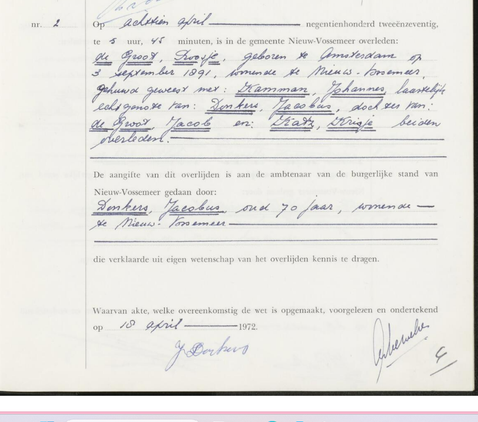 nr. 2 Op achttien april negentienhonderd tweeënzeventig,
te 5 uur, 45 minuten, is in de gemeente Nieuw-Vossemeer overleden:
de Groot, geboren te Amsterdam op
3 september 1891, wonende te Nieuw-Vossemeer,
gehuwd geweest met: Kamman, Johannes, laatstelijk
echtgenote van: Donkers, Jacobus, dochter van:
de Groot, Jacob en: Katz, beiden
overleden.
De aangifte van dit overlijden is aan de ambtenaar van de burgerlijke stand van
Nieuw-Vossemeer gedaan door:
Donkers, Jacobus, oud 70 jaar, wonende
te Nieuw-Vossemeer
die verklaarde uit eigen wetenschap van het overlijden kennis te dragen.
Waarvan akte, welke overeenkomstig de wet is opgemaakt, voorgelezen en ondertekend
op 18 april 1972.
J Donkers